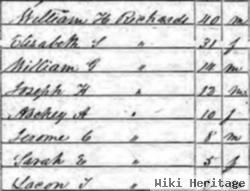 William H Richards 40 m
Elisabeth S " 31 f
William G " 14 m
Joseph H " 12 m
Archey A " 10 f
Jerome C " 8 m
Sarah E " 5 f
Jacon T "
Wiki Heritage